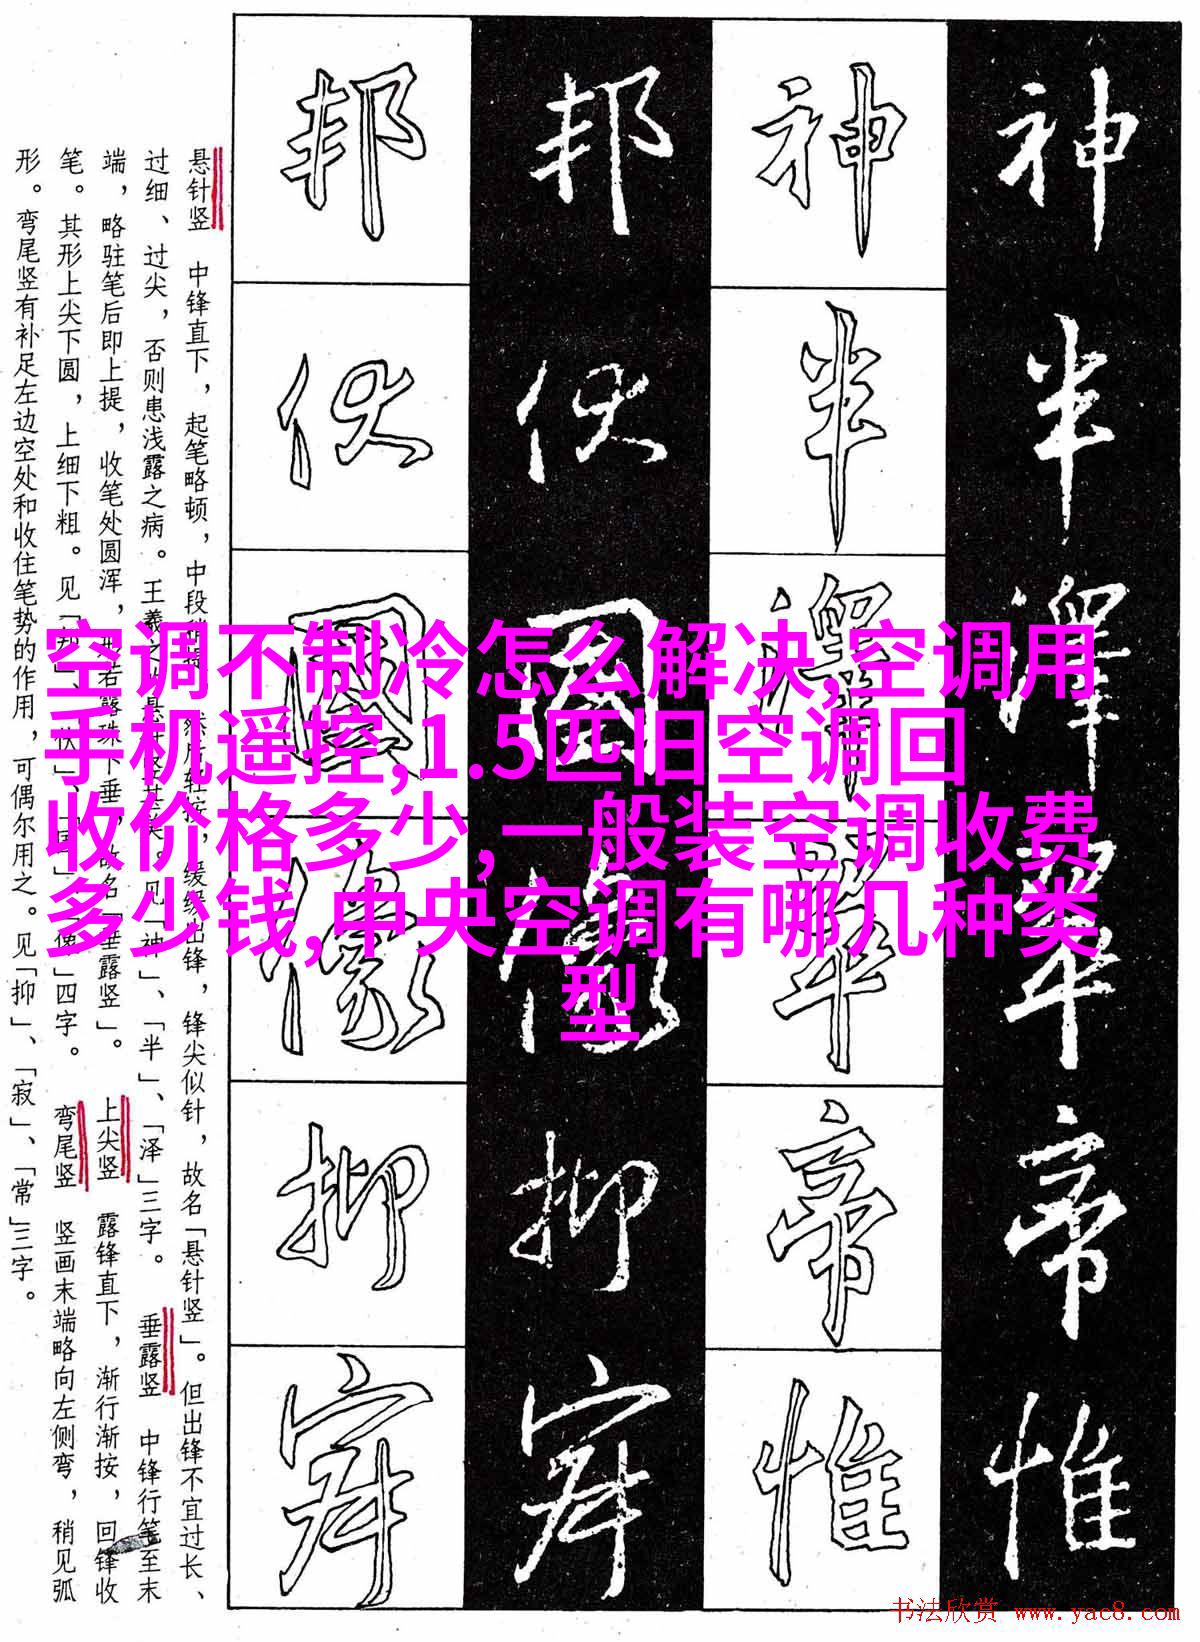 神神邦邦
半半伏伏
澤澤國國
翠翠像像
帝帝抑抑
惟惟寂寂
悬针竖 中锋直下，起笔略顿，中段稍提，然后轻按，缓缓出锋，锋尖似针，故名「悬针竖」。但出锋不宜过长、
过细、过尖，否则患浅露之病。王羲之 悬针竖 美。见「神」、「半」、「泽」三字。 垂露竖 中锋行笔至末
端，略驻笔后即上提，收笔处圆浑，形若露珠下垂，故名「垂露竖」。 上尖竖 露锋直下，渐行渐按，回锋收
笔。其形上尖下圆，上细下粗。见「邦」、「伏」、「国」、「像」四字。 弯尾竖 竖画末端略向左侧弯，稍见弧
形。弯尾竖有补足左边空处和收住笔势的作用，可偶尔用之。见「抑」、「寂」、「常」三字。
空调不制冷怎么解决,空调用
手机遥控,1.5匹旧空调回
收价格多少,一般装空调收费
多少钱,中央空调有哪几种类
型
书法欣赏 www.yac8.com